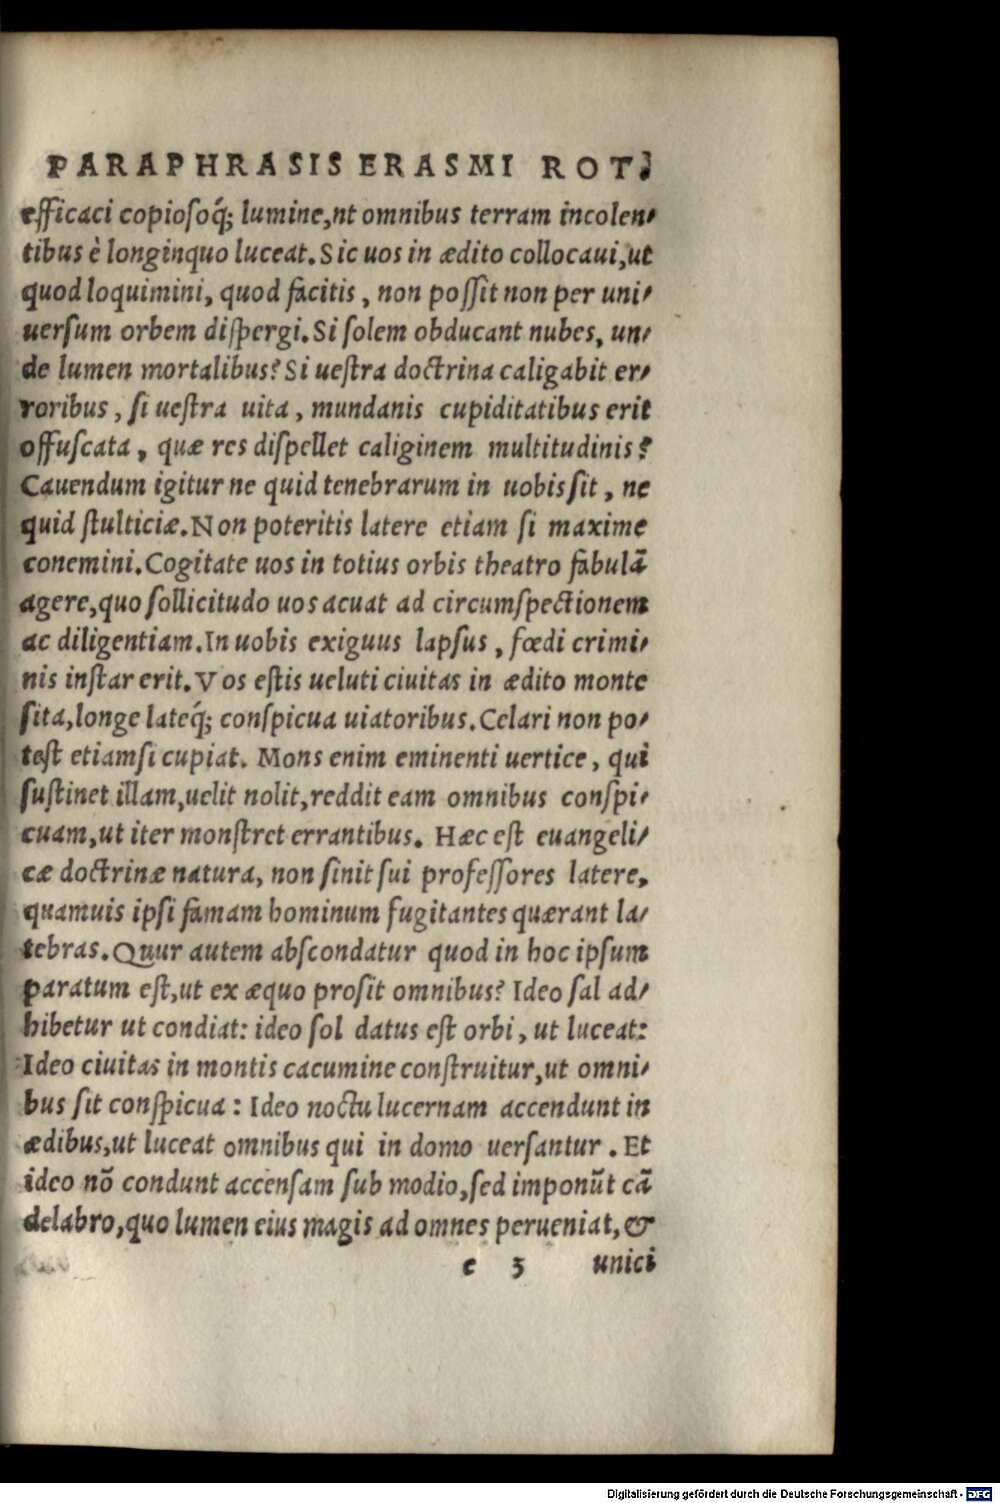 PARAPHRASIS ERASMI ROT.
efficaci copiosoq́; lumine,nt omnibus terram incolen-
tibus è longinquo luceat. Sic uos in ædito collocaui,ut
quod loquimini, quod facitis, non possit non per uni-
uersum orbem dispergi. Si solem obducant nubes, un-
de lumen mortalibus? Si uestra doctrina caligabit er-
roribus, si uestra uita, mundanis cupiditatibus erit
offuscata, quæ res dispellet caliginem multitudinis?
Cauendum igitur ne quid tenebrarum in uobis sit, ne
quid stulticiæ. Non poteritis latere etiam si maxime
conemini. Cogitate uos in totius orbis theatro fabulã
agere, quo sollicitudo uos acuat ad circumspectionem
ac diligentiam. In uobis exiguus lapsus, fœdi crimi-
nis instar erit. Vos estis ueluti ciuitas in ædito monte
sita, longe lateq́; conspicua uiatoribus. Celari non po-
test etiamsi cupiat. Mons enim eminenti uertice, qui
sustinet illam, uelit nolit, reddit eam omnibus conspi-
cuam, ut iter monstret errantibus. Hæc est euangeli-
cæ doctrinæ natura, non sinit sui professores latere,
quamuis ipsi famam hominum fugitantes quærant la-
tebras. Quur autem abscondatur quod in hoc ipsum
paratum est, ut ex æquo prosit omnibus? Ideo sal ad-
hibetur ut condiat: ideo sol datus est orbi, ut luceat:
Ideo ciuitas in montis cacumine construitur, ut omni-
bus sit conspicua: Ideo noctu lucernam accendunt in
ædibus, ut luceat omnibus qui in domo uersantur. Et
ideo nõ condunt accensam sub modio, sed imponũt cã
delabro, quo lumen eius magis ad omnes perueniat, &
e 3 unici
Digitalisierung gefördert durch die Deutsche Forschungsgemeinschaft - DFG